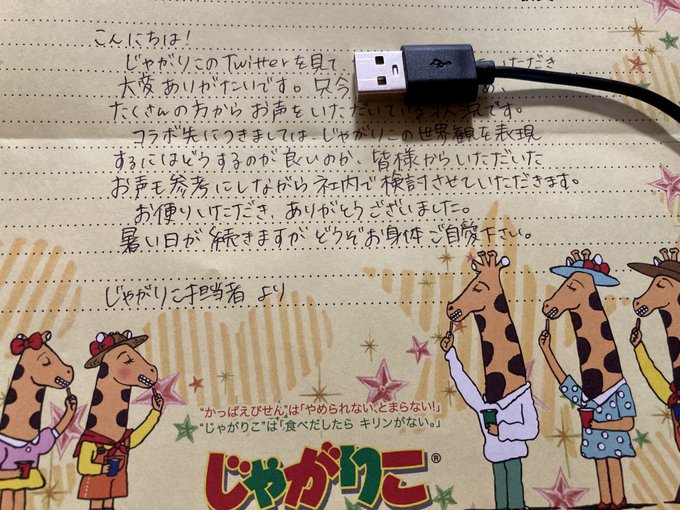 こんにちは!
じゃがりこのTwitterを見て、 いただき
大変ありがたいです。只今
たくさんの方からお声をいただいている状況です。
コラボ先につきましては、じゃがりこの世界観を表現
するにはどうするのが良いのか、皆様からいただいた
お声も参考にしながら社内で検討させていただきます。
お便りいただき、ありがとうございました。
暑い日が続きますがどうぞお身体ご自愛下さい。
じゃがりこ担当者 より
"かっぱえびせん"は「やめられない、とまらない!」
"じゃがりこ"は「食べだしたら キリンがない。」
じゃがりこ®